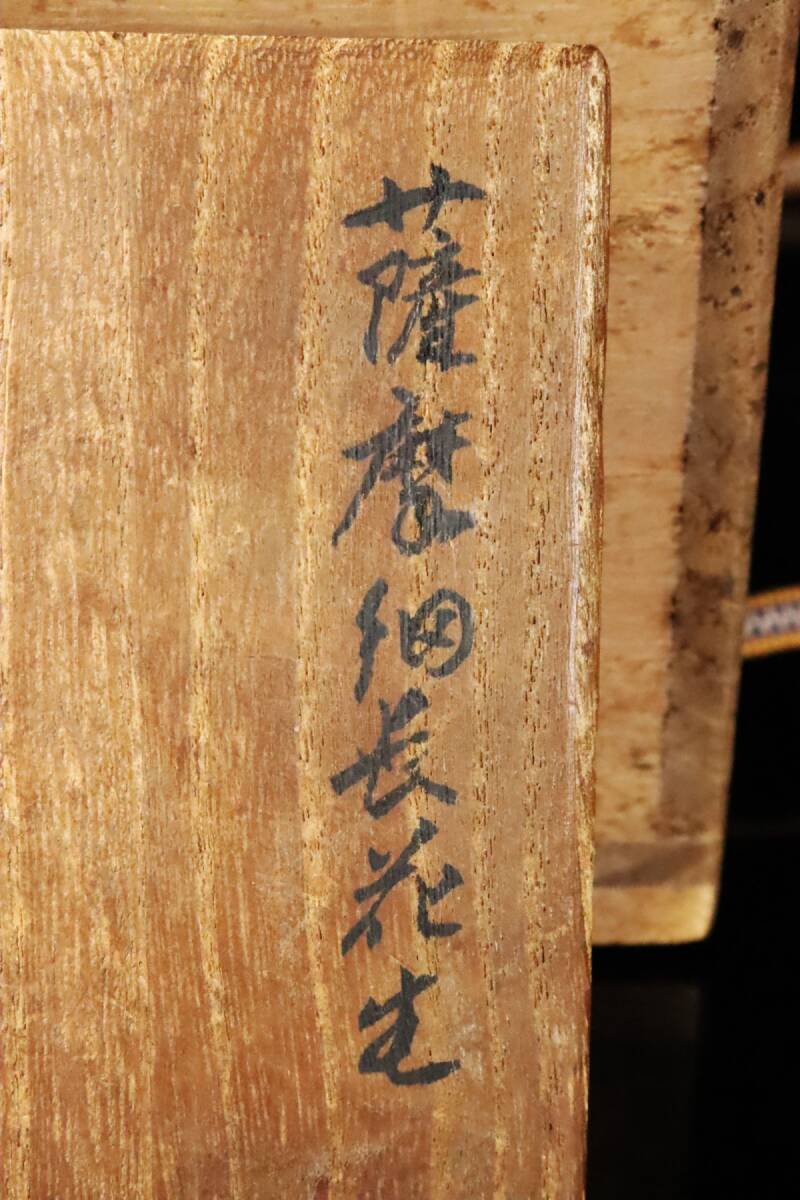 薩摩細長花生